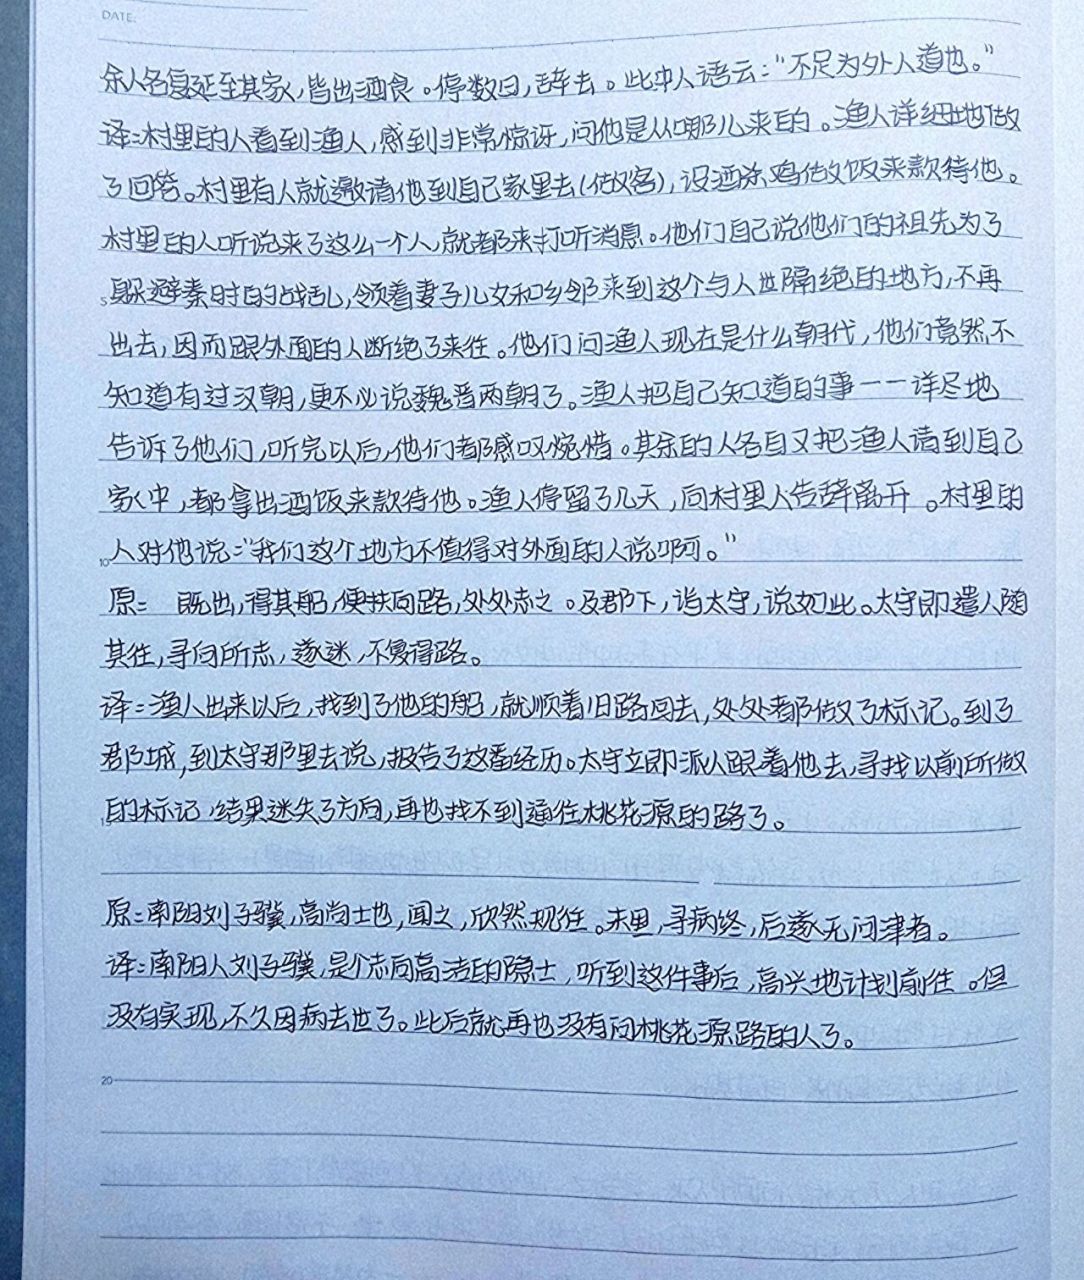 DATE:
余人各复延至其家，皆出酒食。停数日，辞去。此中人语云："不足为外人道也。"
译：村里的人看到渔人，感到非常惊讶，问他是从哪儿来的。渔人详细地做
了回答。村里有人就邀请他到自己家里去(做客)，设酒杀鸡做饭来款待他。
村里的人听说来了这么一个人，就都来打听消息。他们自己说他们的祖先为了
5 躲避秦时的战乱，领着妻子儿女和乡邻来到这个与人世隔绝的地方，不再
出去，因而跟外面的人断绝了来往。他们问渔人现在是什么朝代，他们竟然不
知道有过汉朝，更不必说魏晋两朝了。渔人把自己知道的事一一详尽地
告诉了他们，听完以后，他们都感叹惋惜。其余的人各自又把渔人请到自己
家中，都拿出酒饭来款待他。渔人停留了几天，向村里人告辞离开。村里的
10 人对他说："我们这个地方不值得对外面的人说啊。"
原： 既出，得其船，便扶向路，处处志之。及郡下，诣太守，说如此。太守即遣人随
其往，寻向所志，遂迷，不复得路。
译：渔人出来以后，找到了他的船，就顺着旧路回去，处处都做了标记。到了
郡城，到太守那里去说，报告了这番经历。太守立即派人跟着他去，寻找以前所做
15 的标记，结果迷失了方向，再也找不到通往桃花源的路了。
原：南阳刘子骥，高尚士也，闻之，欣然规往。未果，寻病终，后遂无问津者。
译：南阳人刘子骥，是个志向高洁的隐士，听到这件事后，高兴地计划前往。但
没有实现，不久因病去世了。此后就再也没有问桃花源路的人了。
20